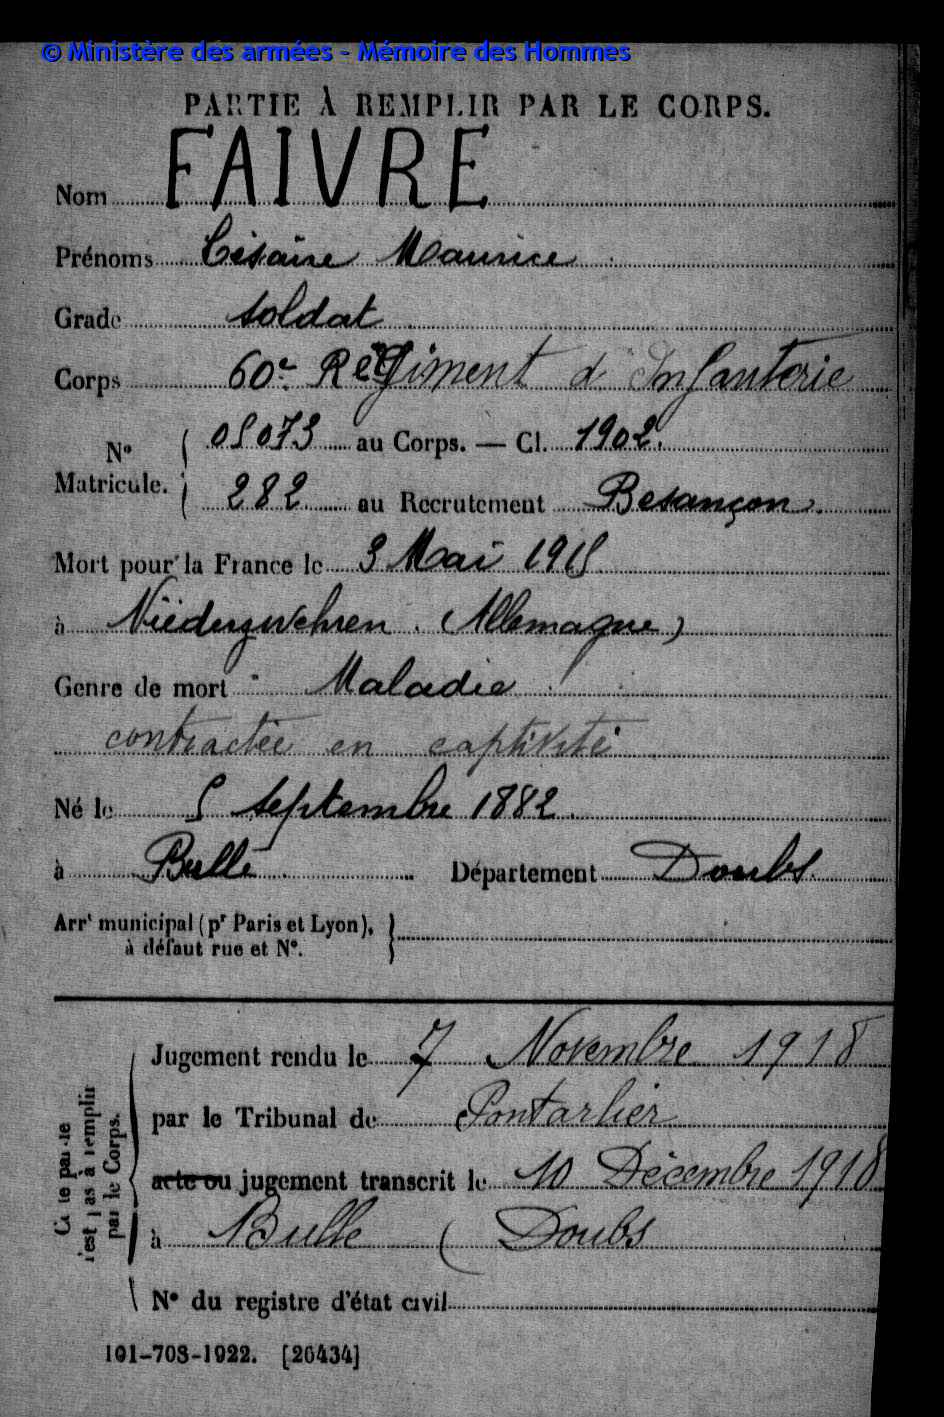 © Ministère des armées - Mémoire des Hommes
PARTIE À REMPLIR PAR LE CORPS.
Nom FAIVRE
Prénoms Césaire Maurice
Grade soldat
Corps 60e Régiment d'Infanterie
No Matricule. { 05073 au Corps. — Cl. 1902.
282 au Recrutement Besançon.
Mort pour la France le 3 Mai 1915
à Niederzwehren. (Allemagne)
Genre de mort Maladie
contractée en captivité
Né le 5 septembre 1882.
à Bulle Département Doubs
Arrt municipal (pr Paris et Lyon),
à défaut rue et No.
Cette partie n'est pas à remplir par le Corps.
Jugement rendu le 7 Novembre 1918
par le Tribunal de Pontarlier
acte ou jugement transcrit le 10 Décembre 1918
à Bulle (Doubs
No du registre d'état civil
101-708-1922. [26434]